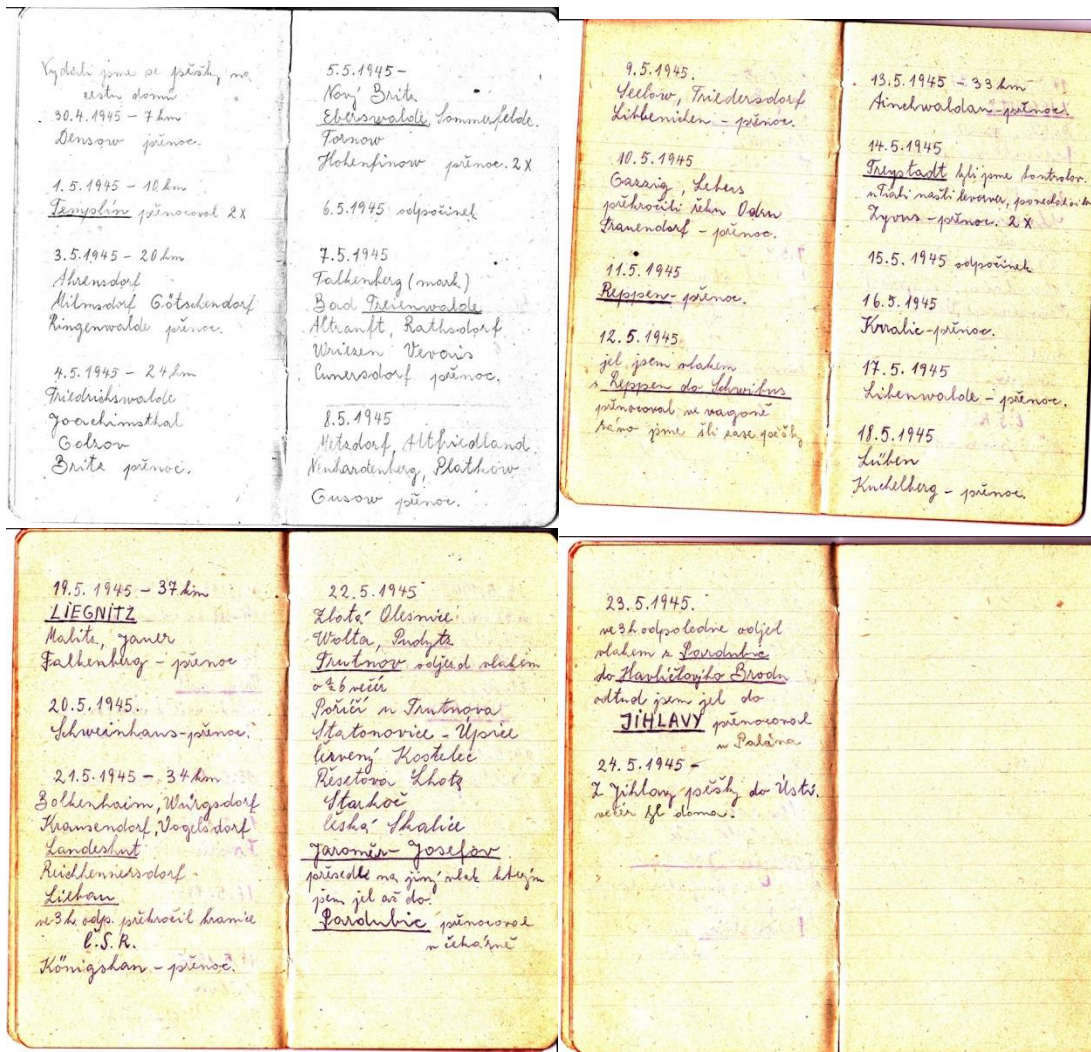 Vydali jsme se pěšky na
cestu domů
30.4.1945 – 7 km
Densow přenoc.
1.5.1945 – 10 km
Templín přenocoval 2X
3.5.1945 – 20 km
Ahrensdorf
Milmsdorf Götschendorf
Ringenwalde přenoc.
4.5.1945 – 24 km
Friedrichswalde
Joachimsthal
Golzov
Britz přenoc.
5.5.1945 –
Nový Britz
Eberswalde, Sommerfelde.
Tornow
Hohenfinow přenoc. 2X
6.5.1945 odpočinek
7.5.1945
Falkenberg (mark)
Bad Freienwalde
Altranft, Rathsdorf
Wriezen Vevais
Cunersdorf přenoc.
8.5.1945
Metzdorf, Altfriedland.
Neuhardenberg, Platkow
Gusow přenoc.
9.5.1945.
Seelow, Friedersdorf
Libbenichen – přenoc.
10.5.1945
Lebus
překročili řeku Odru
Frauendorf – přenoc.
11.5.1945
Reppen – přenoc.
12.5.1945
jel jsem vlakem
z Reppen do Schwibus
přenocoval ve vagoně
ráno jsme šli zase pěšky
13.5.1945 – 33 km
přenoc.
14.5.1945
Freystadt byli jsme kontrolov.
našli revorver,
Zyrus – přenoc. 2X
15.5.1945 odpočinek
16.5.1945
přenoc.
17.5.1945
Libenwalde – přenoc.
18.5.1945
Lüben
Kuchelberg – přenoc.
19.5.1945 – 37 km
LIEGNITZ
Malitz, Jauer
Falkenberg – přenoc
20.5.1945.
Schweinhaus – přenoc.
21.5.1945 – 34 km
Bolkenhaim, Würgsdorf
Krausendorf, Vogelsdorf
Landeshut
Reichhennersdorf –
Liebau
ve 3 h. odp. překročil hranice
Č.S.R.
Königshan – přenoc.
22.5.1945
Zlatá Olešnice
Wolta,
Trutnov odjezd vlakem
o ½ 6 večer
Poříčí u Trutnova
Statonovice – Úpice
Červený Kostelec
Řešetova Lhota
Starkoč
Česká Skalice
Jaroměr – Josefov
přesedl na jiný vlak kterým
jsem jel až do
Pardubic přenocoval
v čekárně
23.5.1945.
ve 3 h odpoledne odjel
vlakem z Pardubic
do Havlíčkovýho Brodu
odtud jsem jel do
JIHLAVY přenocoval
u Palána
24.5.1945 –
Z Jihlavy pěšky do Ústí.
večer byl doma.